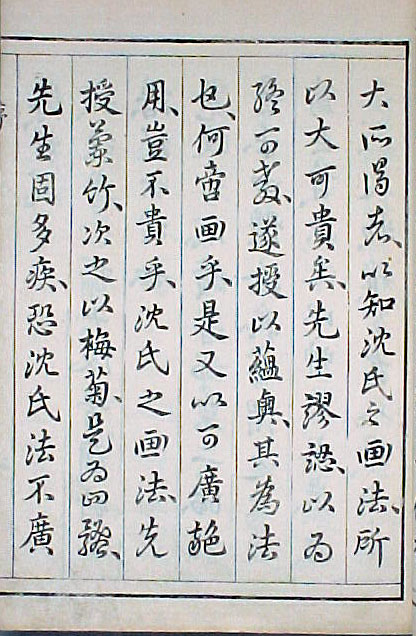 大所得者、以知沈氏之画法、所
以大可貴矣、先生謬認、以為
終可教、遂授以蘊奥、其為法
也、何啻画乎、是又以可廣
用、豈不貴乎、沈氏之画法、先
授蘭竹、次之以梅菊、是為四
先生固多疾、恐沈氏法不廣